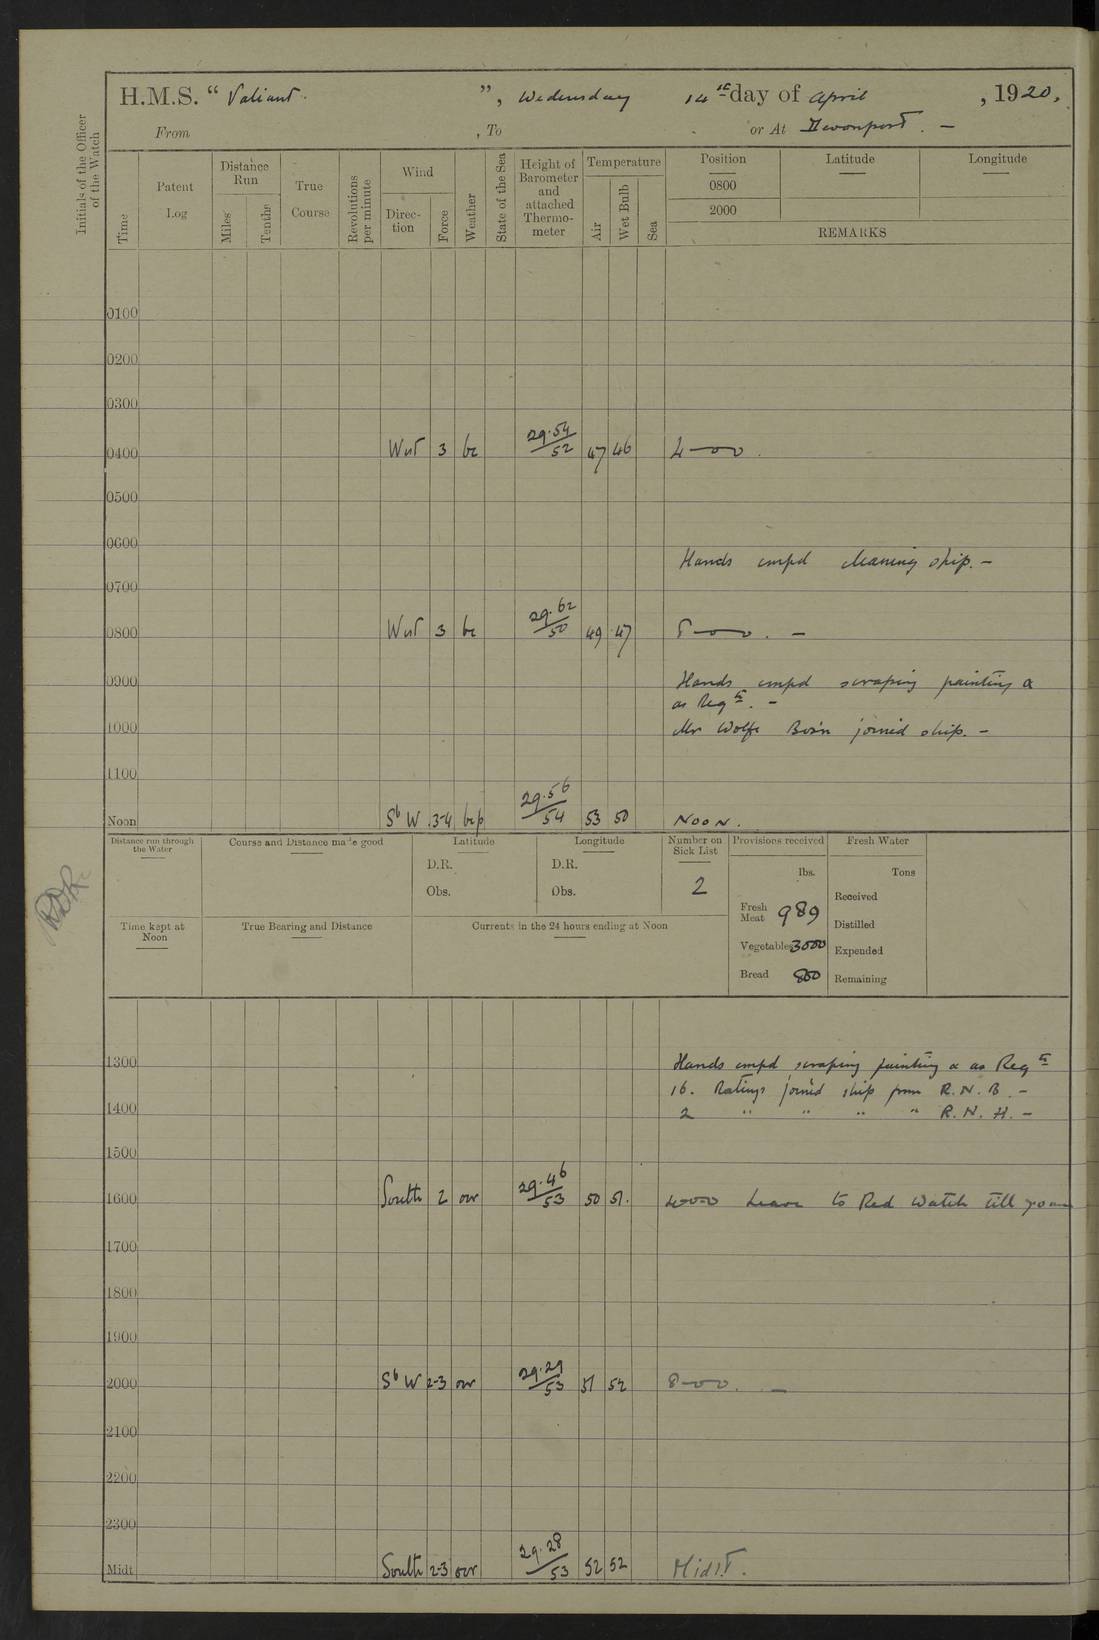 H.M.S. “ Valiant. ”, Wednesday 14th day of April , 1920.
From , To or At Devonport. –
Initials of the Officer of the Watch
Time
Patent Log
Distance Run
Miles
Tenths
True Course
Revolutions per minute
Wind
Direc-tion
Force
Weather
State of the Sea
Height of Barometer and attached Thermo-meter
Temperature
Air
Wet Bulb
Sea
Position Latitude Longitude
0800
2000
REMARKS
0100
0200
0300
0400 West 3 bc 29.54/52 47 46 4-00.
0500
0600
Hands empd cleaning ship. –
0700
0800 West 3 bc 29.62/50 49 47 8-00. –
0900 Hands empd scraping painting &
as Reqte. –
1000 Mr Wolfe Bos'n joined ship. –
1100
Noon SbW 3-4 bcp 29.56/54 53 50 NOON.
Distance run through the Water
Course and Distance made good
Latitude
D.R.
Obs.
Longitude
D.R.
Obs.
Number on Sick List
2
Provisions received
lbs.
Fresh Meat 989
Vegetables 3000
Bread 800
Fresh Water
Tons
Received
Distilled
Expended
Remaining
Time kept at Noon
True Bearing and Distance
Currents in the 24 hours ending at Noon
1300 Hands empd scraping painting & as Reqte
16. Ratings joined ship from R.N.B. –
1400 2 " " " " R.N.H. –
1500
1600 South 2 our 29.46/53 50 51. 4-00 Leave to Red Watch till 7.0 am
1700
1800
1900
2000 SbW 2-3 our 29.29/53 51 52 8-00. –
2100
2200
2300
Midt South 2-3 our 29.28/53 52 52 Midt.